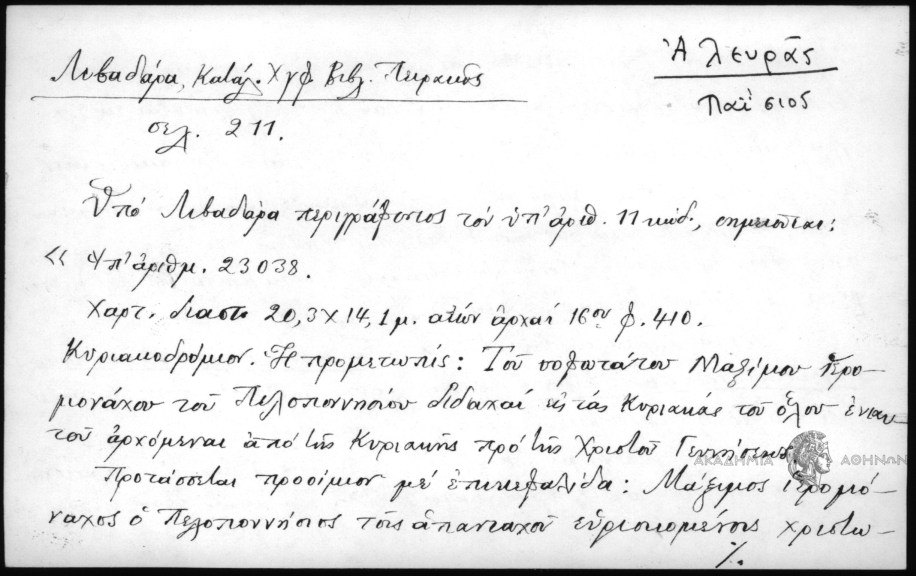 Ἀλευρᾶς
Παΐσιος
Λιβαδάρα, Κατάλ. Χγφ. Βιβλ. Πειραιῶς
σελ. 211.
Ὑπό Λιβαδάρα περιγράφοντος τόν ὑπ' ἀριθ. 11 κώδ., σημειοῦται:
« Ὑπ' ἀριθμ. 23038.
Χαρτ. διαστ. 20,3 Χ 14,1 μ. αἰών ἀρχαί 16ου φ. 410.
Κυριακοδρόμιον. Ἡ προμετωπίς: Τοῦ σοφωτάτου Μαξίμου ἱερο-
μονάχου τοῦ Πελοποννησίου διδαχαί εἰς τάς Κυριακάς τοῦ ὅλου ἐνιαυ-
τοῦ ἀρχόμεναι ἀπό τῆς Κυριακῆς πρό τῆς Χριστοῦ Γεννήσεως
Προτάσσεται προοίμιον μέ ἐπικεφαλίδα: Μάξιμος ἱερομό-
ναχος ὁ Πελοποννήσιος τοῖς ἁπανταχοῦ εὑρισκομένοις χριστω-
./.
ΑΚΑΔΗΜΙΑ ΑΘΗΝΩΝ